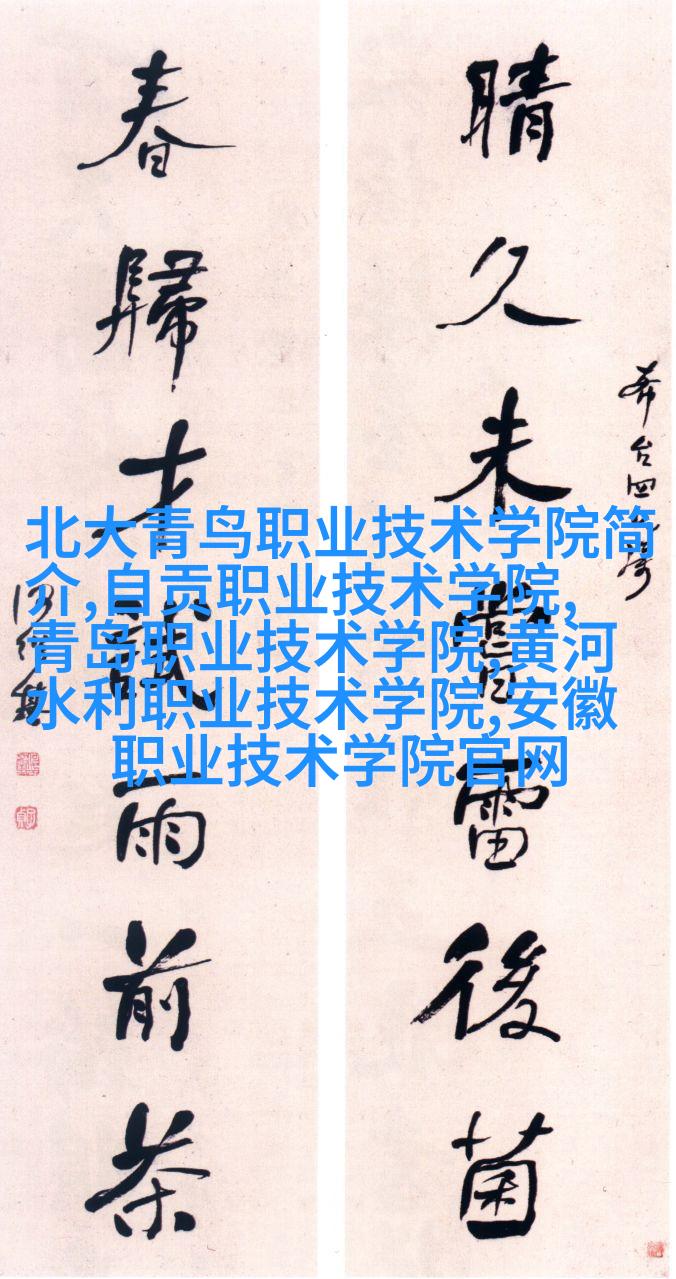 晴久未雷後菌
春歸才雨前茶
何紹基
北大青鸟职业技术学院简
介,自贡职业技术学院,
青岛职业技术学院,黄河
水利职业技术学院,安徽
职业技术学院官网